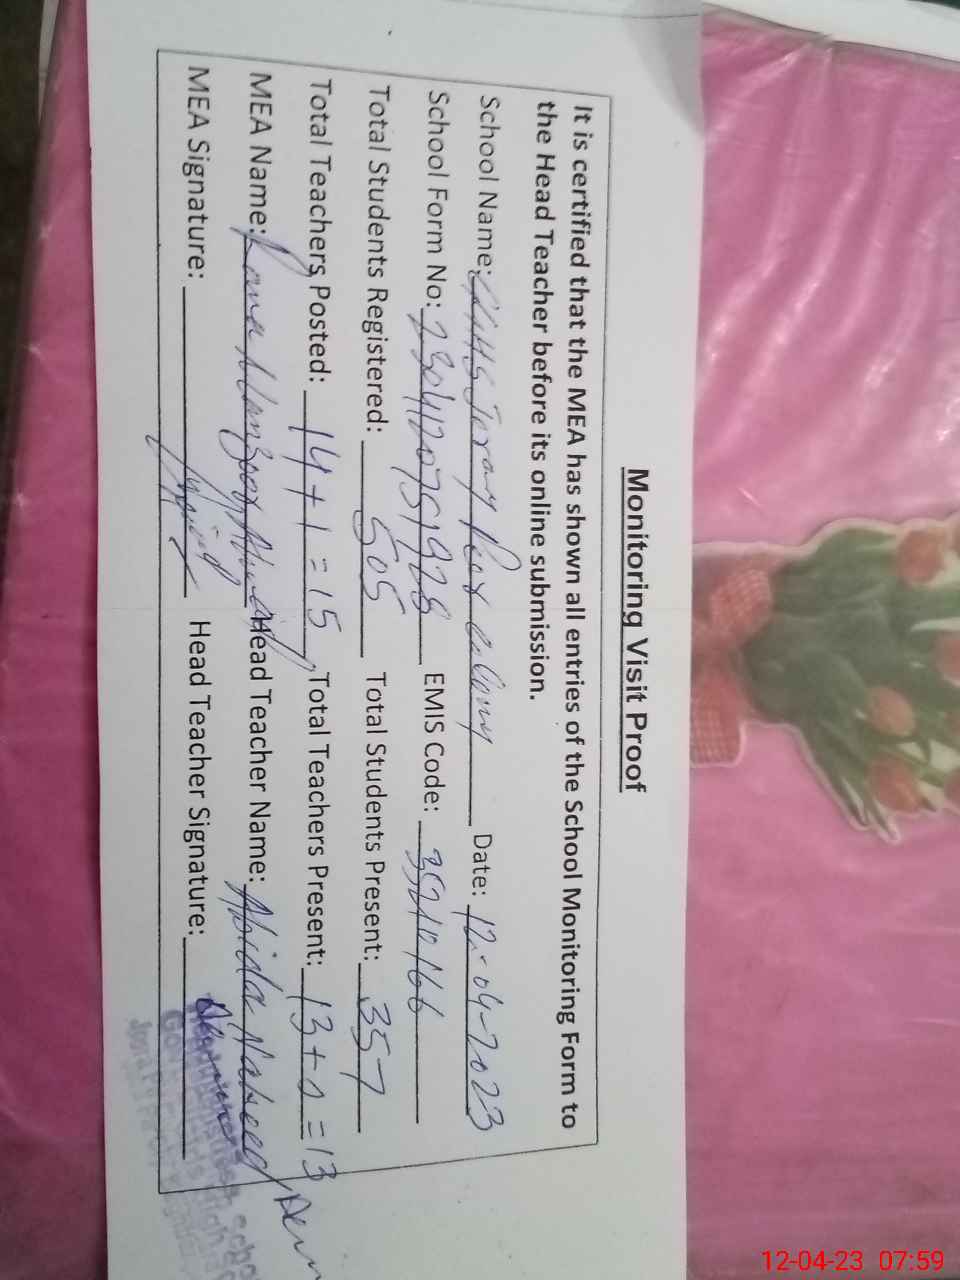 Monitoring Visit Proof
It is certified that the MEA has shown all entries of the School Monitoring Form to
the Head Teacher before its online submission.
School Name: Colony Date: 12-04-2023
School Form No: EMIS Code: 35210166
Total Students Registered: 505 Total Students Present: 357
Total Teachers Posted: 14+1=15 Total Teachers Present: 13+0=13
MEA Name: Rana Manzoor Ahmad Head Teacher Name: Abida Naheed
MEA Signature: Head Teacher Signature:
12-04-23 07:59